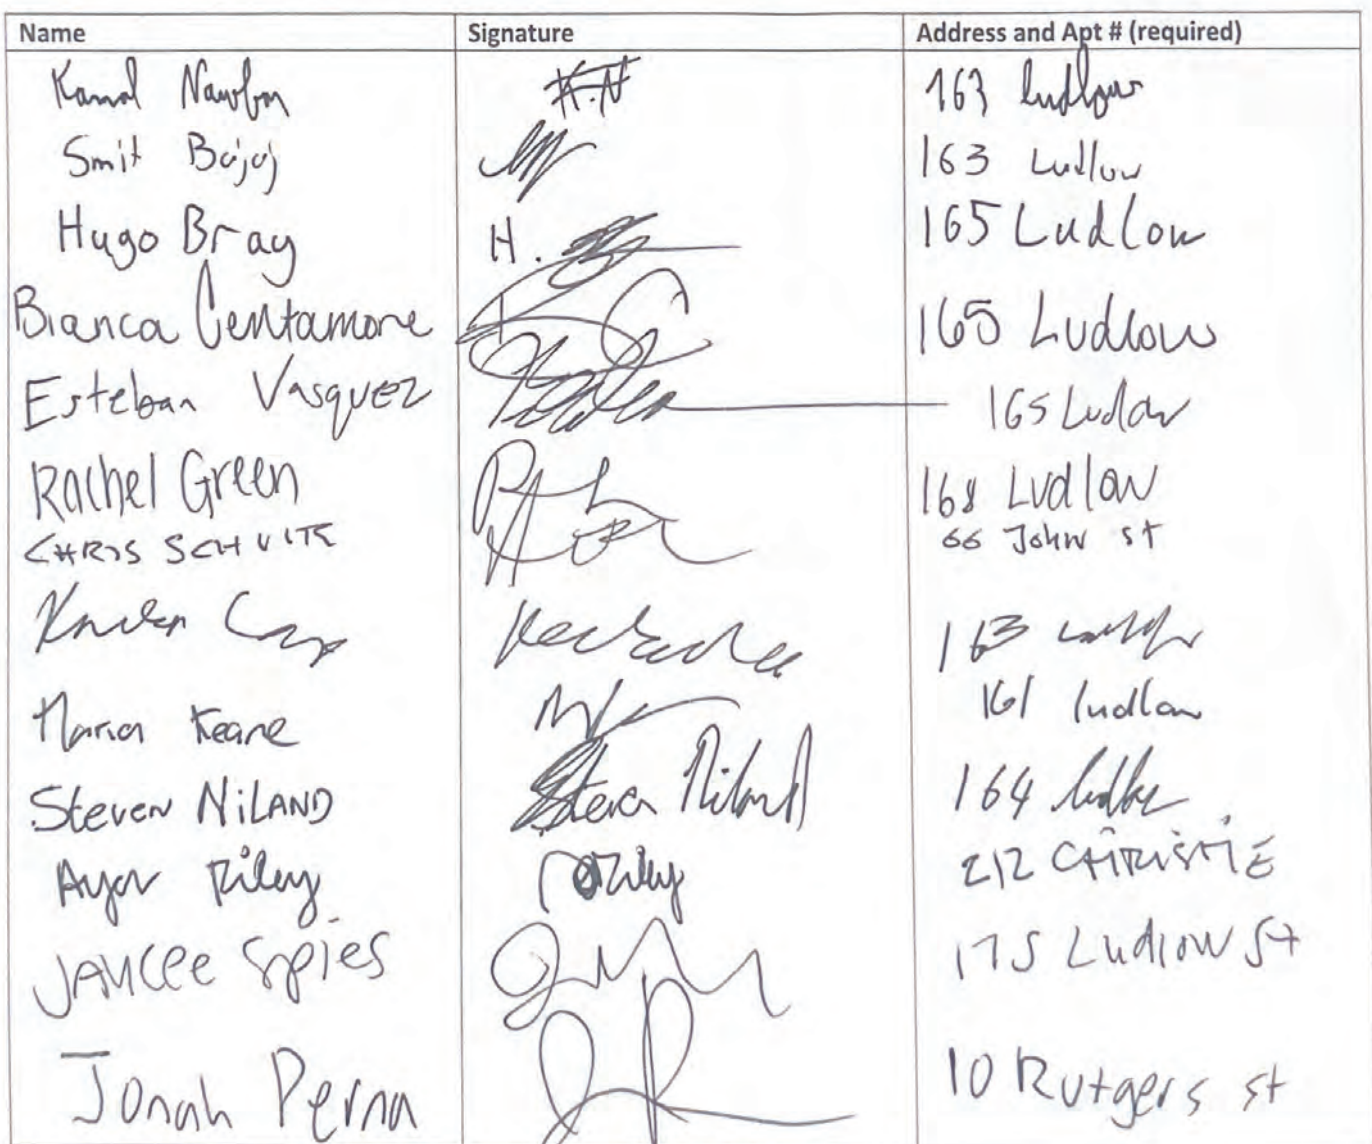 Name Signature Address and Apt # (required)
Kamal K.N 163 Ludlow
Smit Bajaj 163 Ludlow
Hugo Bray H. 165 Ludlow
Bianca Centamore 165 Ludlow
Esteban Vasquez 165 Ludlow
Rachel Green 168 Ludlow
CHRIS SCHULTE 66 John st
163
Maria Keane 161 ludlow
Steven NiLAND Steven Niland 164 ludlow
Riley Riley 212 CHRISTIE
JAYCEE Spies 175 Ludlow St
Jonah Perna 10 Rutgers st